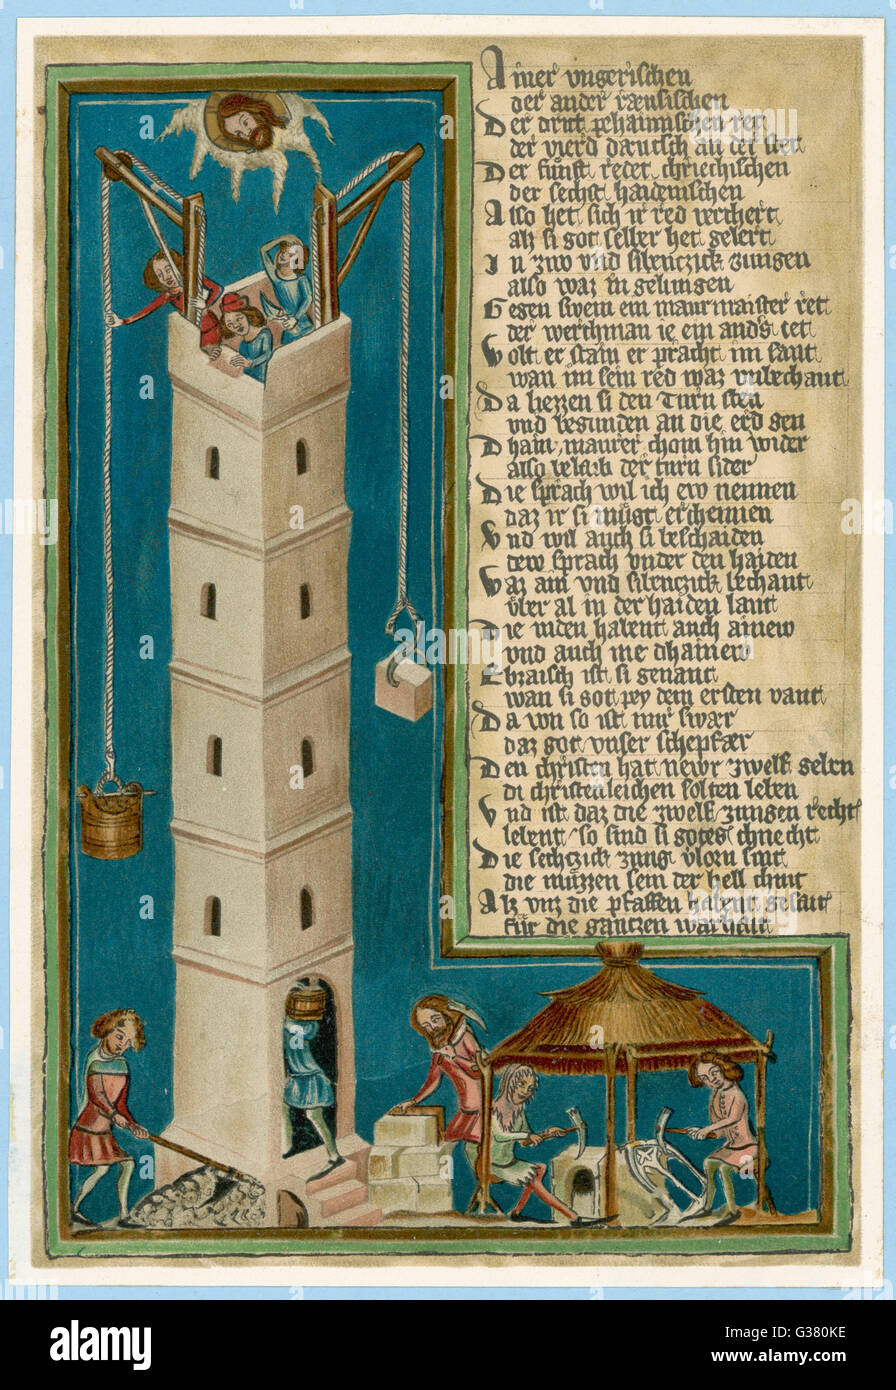 Ainer vngerischen
der ander ræusischen
Der dritt pehaimischen ret
der vierd dæutsch an der stet
Der fůnft redet chriechischen
der sechst haidenischen
Also het sich ir red verchert
alz si got selber het gelert
In zwo vnd sibenczick zungen
also waz in gelungen
Gegen swem ein maurmaister ret
der werchman ie ein and's tet
Wolt er stain er pracht im sant
wan im sein red waz vnbechant
Da liezzen si den Turn sten
vnd begunden an die erd gen
Dhain maurer chom hin wider
also belaib der turn sider
Die sprach wil ich ew nennen
daz ir si můgt erchennen
Vnd wil auch si beschaiden
dew sprach vnder den haiden
Waz ain vnd sibenczick bechant
vber al in der haiden lant
Die iuden habent auch ainew
vnd auch nie dhainew
Ebraisch ist si genant
wan si got pey dem ersten vant
Da von so ist mir swær
daz got vnser schepfær
Den christen hat newr zwelf geben
di christenleichen solten leben
Vnd ist daz die zwelf zungen recht
lebent so sind si gotes chnecht
Die sechczick zung vlorn sint
die můzzen sein der hell chint
Alz vnz die pfaffen habent gesait
fůr die gantzen warhait
alamy
G380KE
www.alamy.com